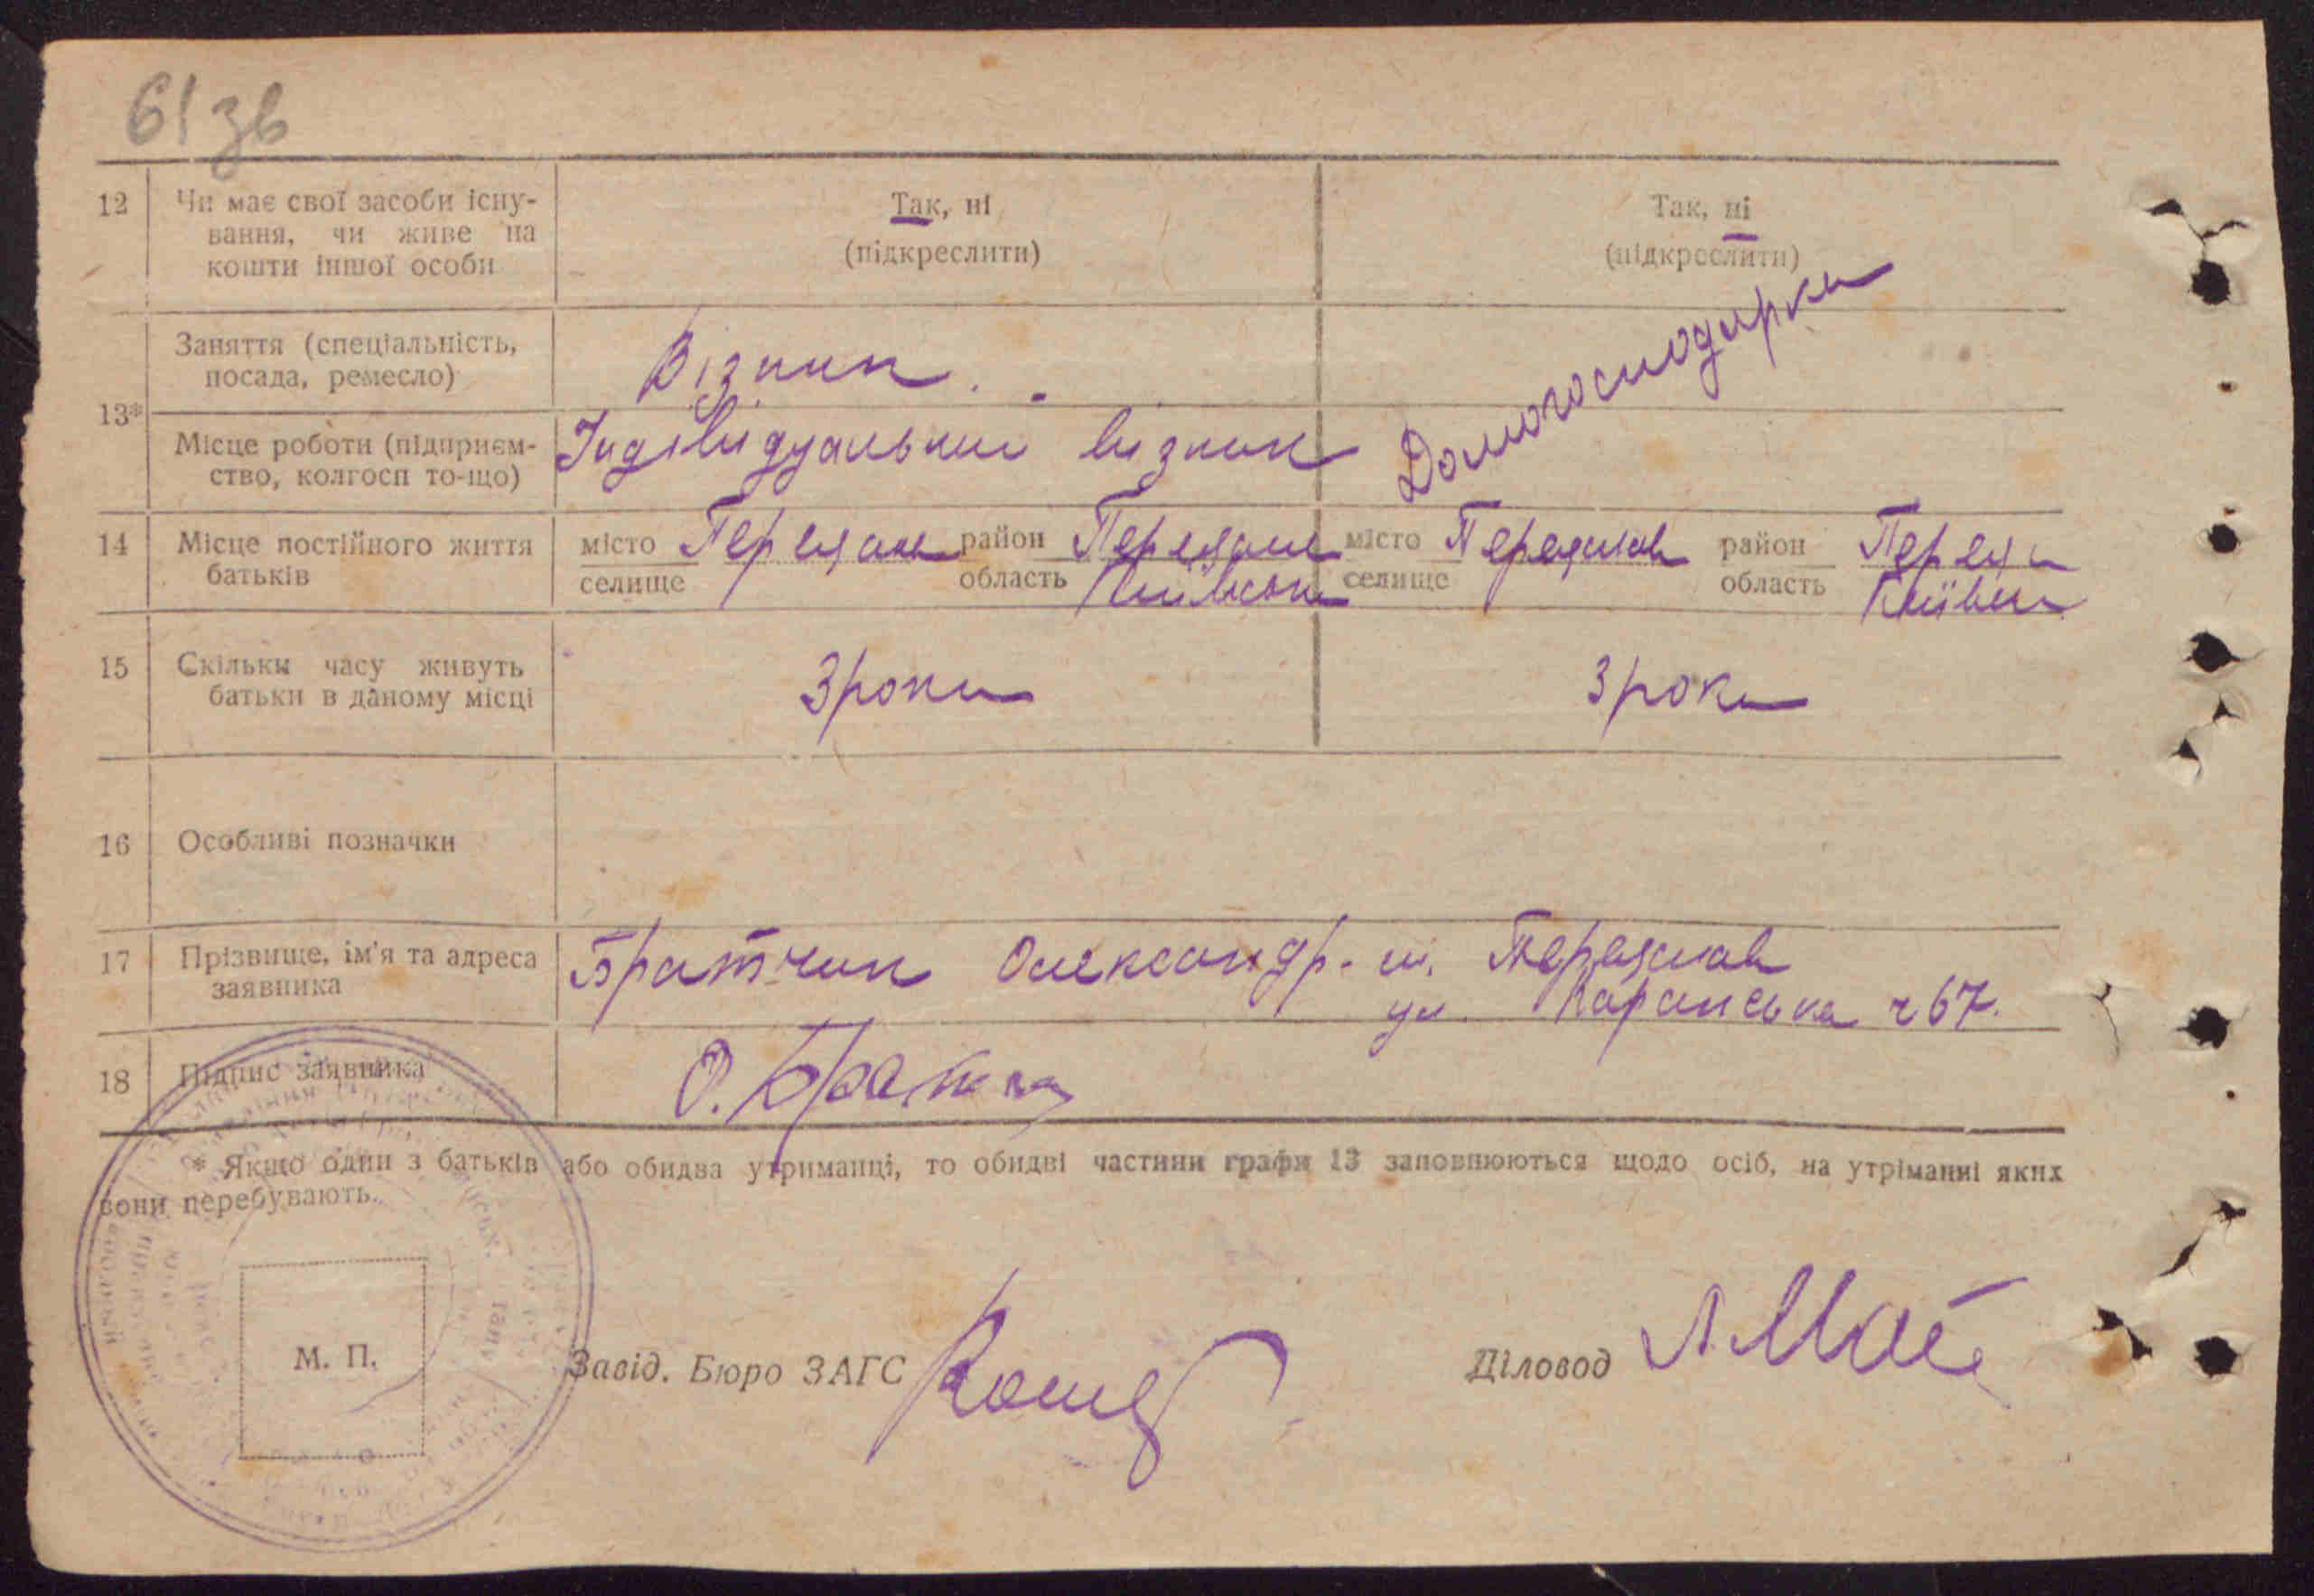 61зв
12 Чи має свої засоби існу-
вання, чи живе на
кошти іншої особи
Так, ні
(підкреслити)
Так, ні
(підкреслити)
13*
Заняття (спеціальність,
посада, ремесло)
Візник.
Домогосподарка
Місце роботи (підприєм-
ство, колгосп то-що)
Індивідуальний візник
14 Місце постійного життя
батьків
місто Переяслав район Переяслав
селище область Київська
місто Переяслав район Переясл
селище область Київськ
15 Скільки часу живуть
батьки в даному місці
3 роки
3 роки
16 Особливі позначки
17 Прізвище, ім'я та адреса
заявника
Братчик Олександр. м. Переяслав
ул. Каранська ч 67.
18 Підпис заявника
О. Братчик
* Якщо один з батьків або обидва утриманці, то обидві частини графи 13 заповнюються щодо осіб, на утріманні яких
вони перебувають.
М. П.
Завід. Бюро ЗАГС
Діловод